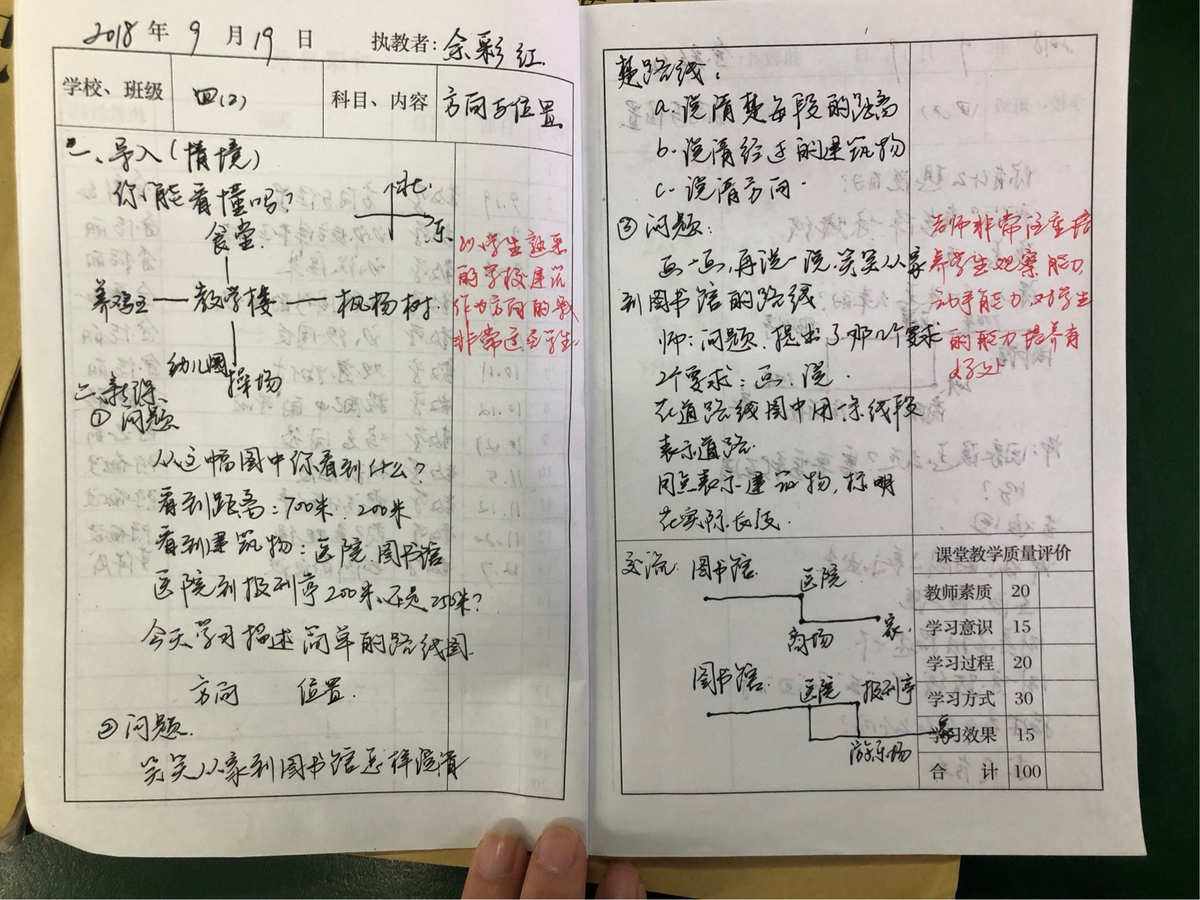 2018 年 9 月 19 日 执教者: 余彩红
学校、班级 四(2) 科目、内容 方向与位置
一、导入(情境)
你能看懂吗?
北
东
食堂
养鸡 — 教学楼 — 枫杨树
幼儿园
操场
以学生熟悉
的学校建筑
作为方向的
非常适合学生
二、新课
① 问题
从这幅图中你看到什么?
看到距离:700米、200米
看到建筑物:医院 图书馆
医院到报刊亭200米,还是250米?
今天学习描述简单的路线图
方向 位置
② 问题
笑笑从家到图书馆怎样说清
楚路线:
a. 说清楚每段的距离
b. 说清经过的建筑物
c. 说清方向
③ 问题:
画一画,再说一说,笑笑从家
到图书馆的路线
师:问题.提出了那几个要求
2个要求:画.说.
在道路线图中用一条线段
表示道路
用点表示建筑物,标明
在实际长度.
老师非常注重培
养学生观察能力
动手能力,对学生
的能力培养有
好处
交流: 图书馆 医院
商场 家
图书馆 医院 报刊亭
游乐场 家
课堂教学质量评价
教师素质 20
学习意识 15
学习过程 20
学习方式 30
学习效果 15
合 计 100